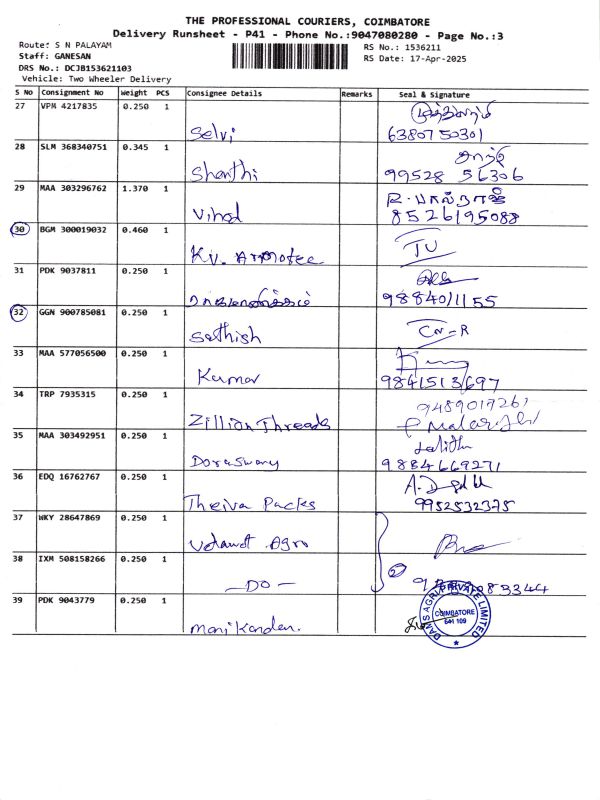 THE PROFESSIONAL COURIERS, COIMBATORE
Delivery Runsheet - P41 - Phone No.:9047080280 - Page No.:3
Route: S N PALAYAM
Staff: GANESAN
DRS No.: DCJB153621103
Vehicle: Two Wheeler Delivery
RS No.: 1536211
RS Date: 17-Apr-2025
S No Consignment No Weight PCS Consignee Details Remarks Seal & Signature
27 VPM 4217835 0.250 1
Selvi 6380750301
28 SLM 368340751 0.345 1 சாந்தி
Shanthi 99528 56306
29 MAA 303296762 1.370 1 R. பால்ராஜ்
8526195088
30 BGM 300019032 0.460 1
Kv.
31 PDK 9037811 0.250 1
98840/1155
32 GGN 900785081 0.250 1
Sathish
33 MAA 577056500 0.250 1
Kumar 9841513697
34 TRP 7935315 0.250 1 9489019261
Zillion Threads
35 MAA 303492951 0.250 1 Lalitha
Doraswamy 9884669271
36 EDQ 16762767 0.250 1
Theiva Packs 9952532375
37 WKY 28647869 0.250 1
Agro
38 IXM 508158266 0.250 1
-Do- 2
39 PDK 9043779 0.250 1
manikandan.
DAMS AGRI PRIVATE LIMITED
COIMBATORE
641 109